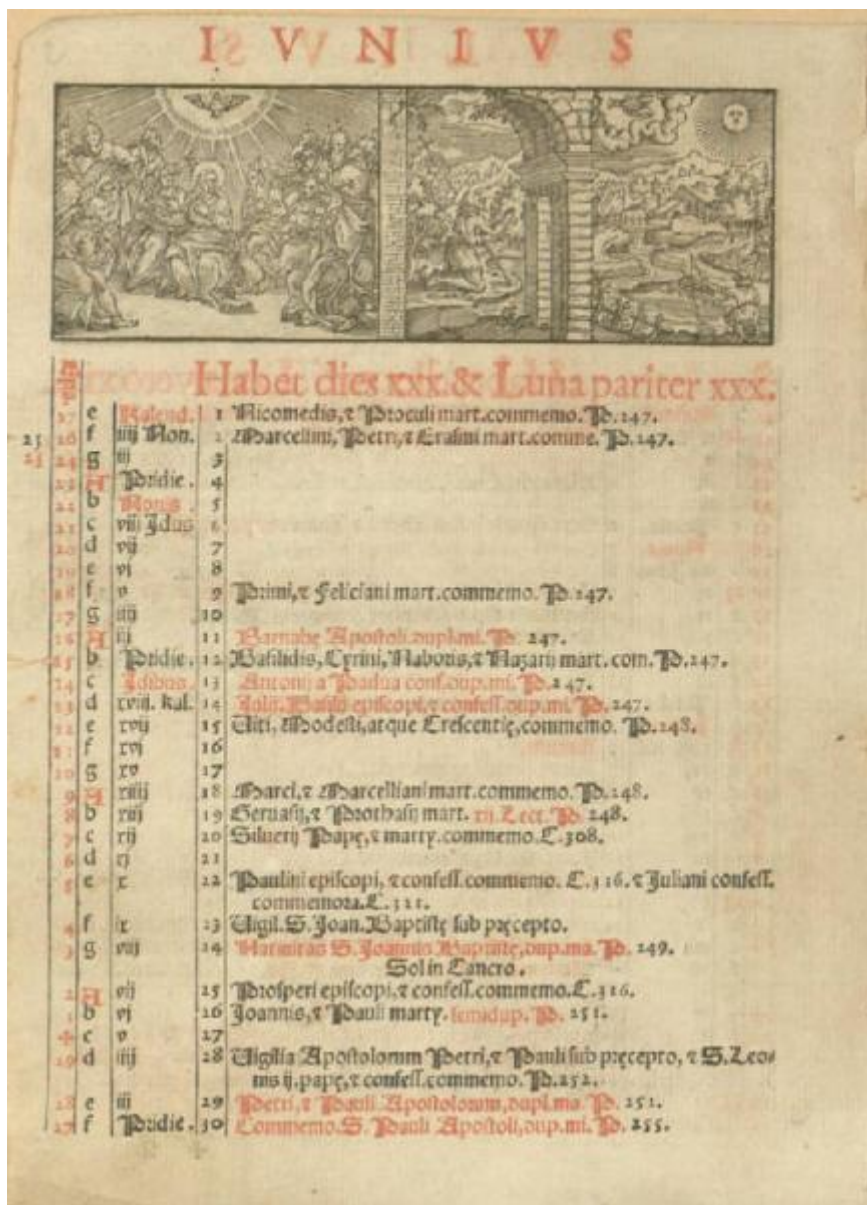 IVNIVS
Habet dies xxx. & Luna pariter xxx.
27 e Kalend. 1 Nicomedis, ⁊ Proculi mart. commemo. P. 247.
25 26 f iiij Non. 2 Marcellini, Petri, ⁊ Erasmi mart. comme. P. 247.
25 24 g iij 3
23 A Pridie. 4
22 b Nonis. 5
21 c viij Idus 6
20 d vij 7
19 e vj 8
18 f v 9 Primi, ⁊ Feliciani mart. commemo. P. 247.
17 g iiij 10
16 A iij 11 Barnabe Apostoli. dupl. mi. P. 247.
15 b Pridie. 12 Basilidis, Cyrini, Naboris, ⁊ Nazarij mart. com. P. 247.
14 c Idibus. 13 Antonij a Padua conf. dup. mi. P. 247.
13 d xviij. kal. 14 Basilij episcopi, ⁊ confess. dup. mi. P. 247.
12 e xvij 15 Viti, Modesti, atque Crescentię, commemo. P. 248.
11 f xvj 16
10 g xv 17
9 A xiiij 18 Marci, ⁊ Marcelliani mart. commemo. P. 248.
8 b xiij 19 Geruasij, ⁊ Prothasij mart. iij. Lect. P. 248.
7 c xij 20 Siluerij Papę, ⁊ marty. commemo. C. 308.
6 d xj 21
5 e x 22 Paulini episcopi, ⁊ confess. commemo. C. 316. ⁊ Juliani confess.
commemora. C. 321.
4 f ix 23 Vigil. S. Joan. Baptistę sub pręcepto.
3 g viij 24 Natiuitas S. Joannis Baptistę, dup. ma. P. 249.
Sol in Cancro.
2 A vij 25 Prosperi episcopi, ⁊ confess. commemo. C. 316.
1 b vj 26 Joannis, ⁊ Pauli marty. semidup. P. 251.
c v 27
29 d iiij 28 Vigilia Apostolorum Petri, ⁊ Pauli sub pręcepto, ⁊ S. Leo-
nis ij. papę, ⁊ confess. commemo. P. 252.
28 e iij 29 Petri, ⁊ Pauli Apostolorum, dupl. ma. P. 252.
27 f Pridie. 30 Commemo. S. Pauli Apostoli, dup. mi. P. 255.